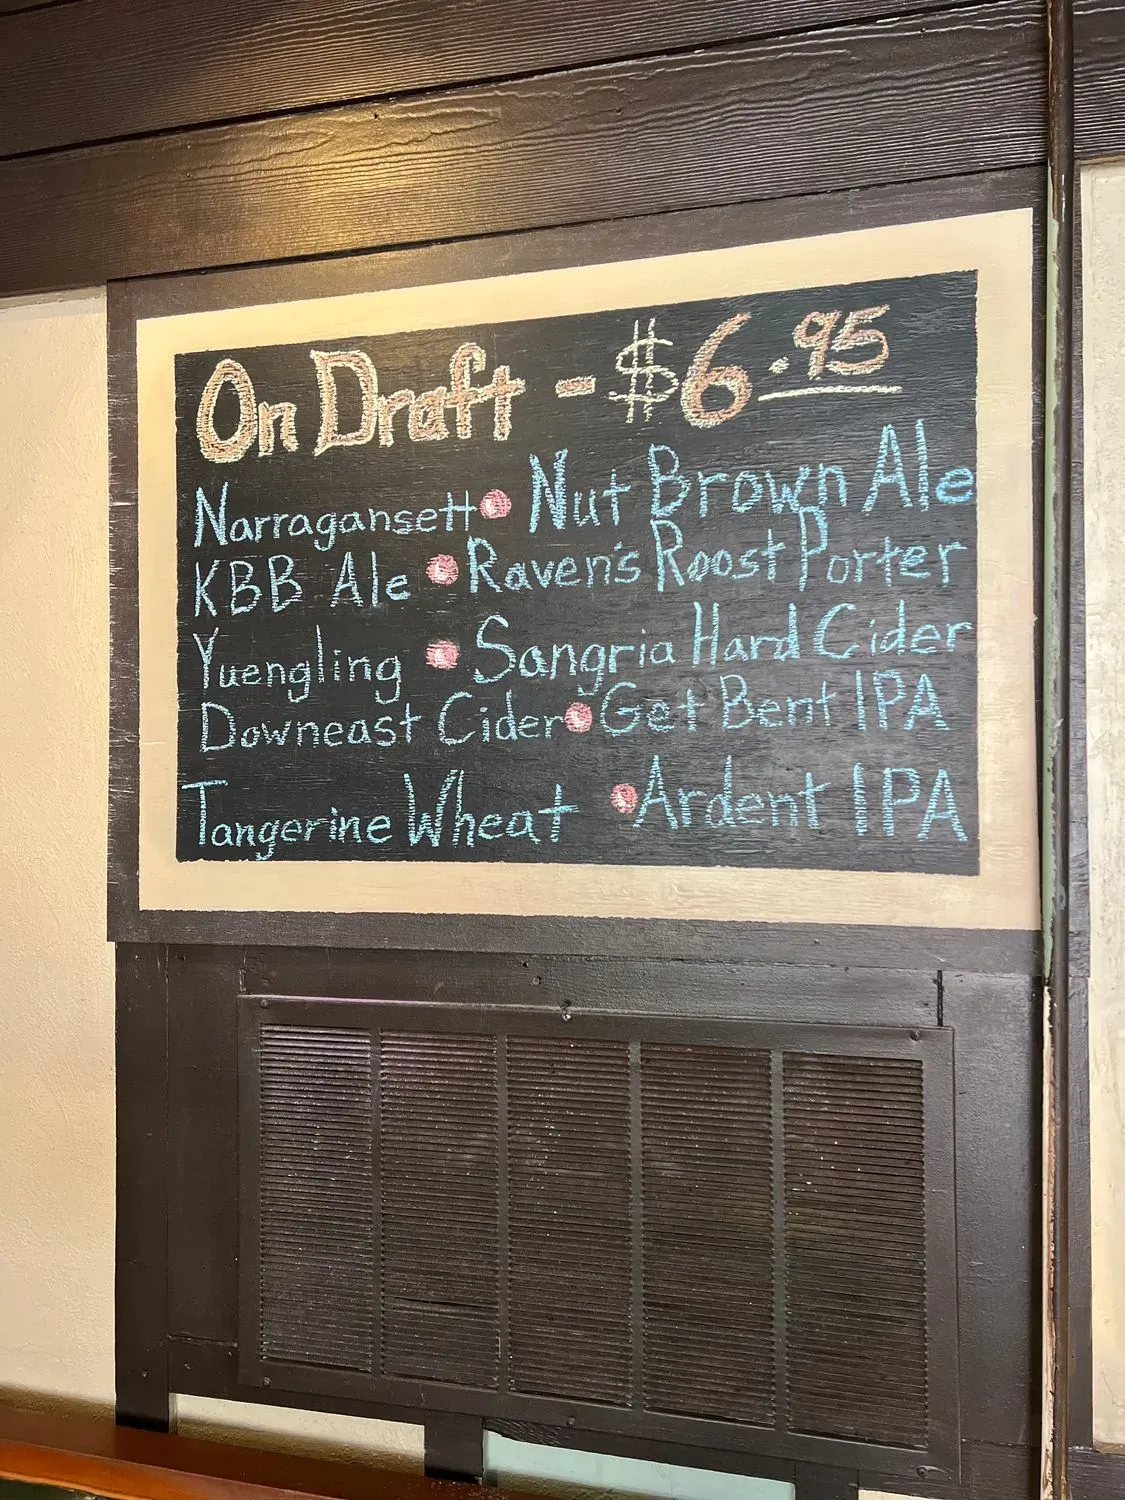 On Draft - $6.95
Narragansett • Nut Brown Ale
KBB Ale • Raven's Roost Porter
Yuengling • Sangria Hard Cider
Downeast Cider • Get Bent IPA
Tangerine Wheat • Ardent IPA